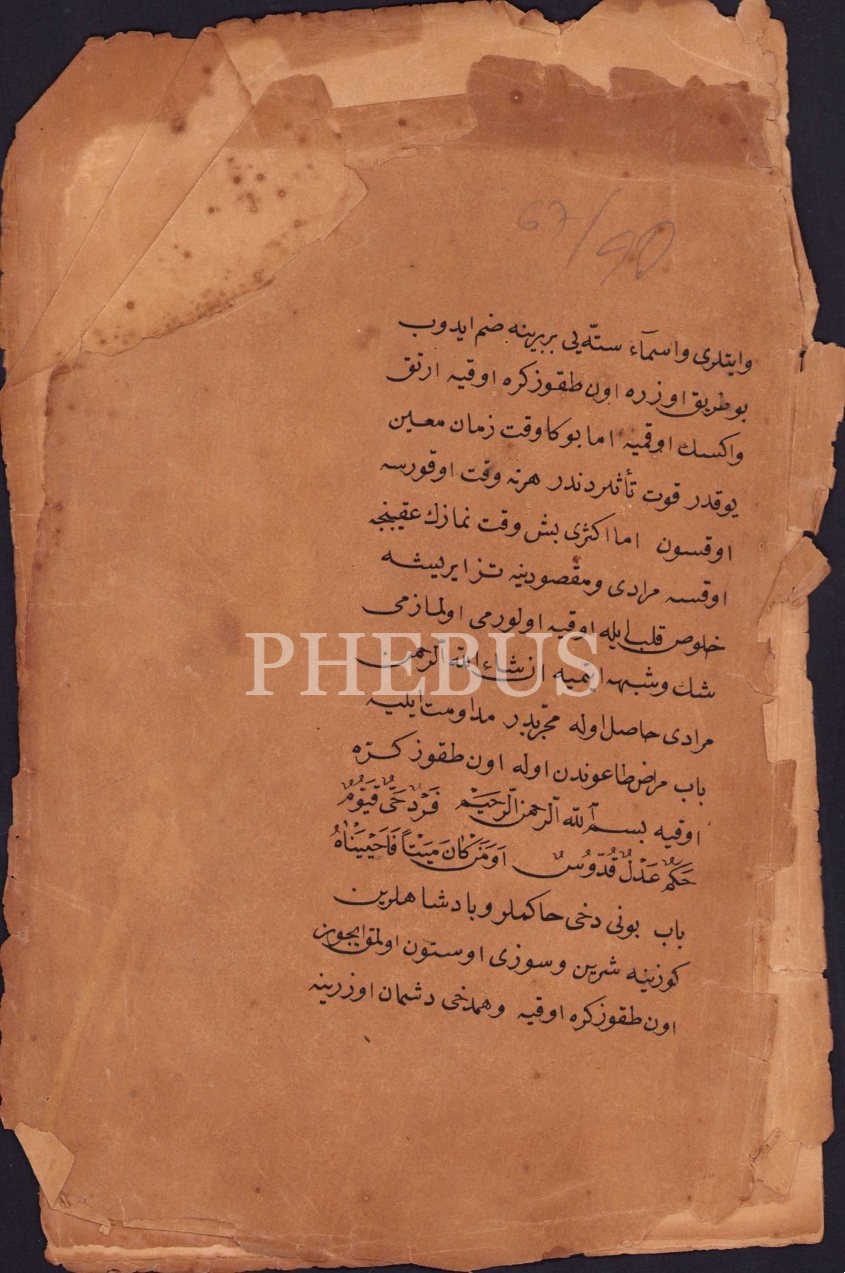 67/90
وایتلری واسمآء ستّه یی بربرینه ضم ایدوب
بو طریق اوزره اون طقوز کره اوقیه ارتق
واکسك اوقمیه اما بوکا وقت زمان معین
یوقدر قوت تأثلردندر هرنه وقت اوقورسه
اوقسون اما اکثری بش وقت نمازك عقبنجه
اوقسه مرادی ومقصودینه تز ایریشه
خلوص قلب ایله اوقیه اولورمی اولمازمی
شك وشبهه ایتمیه ان شاء الله الرحمن
مرادی حاصل اوله مجرّبدر مداومت ایلیه
باب مراض طاعوندن اوله اون طقوز کرّه
اوقیه بسم الله الرّحمن الرّحیم فَرْدٌ حَیٌّ قَیُّومٌ
حَکَمٌ عَدْلٌ قُدُّوسٌ اَوَمَنْ کَانَ مَیْتاً فَاَحْیَیْنَاهُ
باب بونی دخی حاکملر وپادشاهلرین
کوزینه شرین وسوزی اوستون اولمق ایچون
اون طقوز کره اوقیه وهمدخی دشمان اوزرینه
PHEBUS